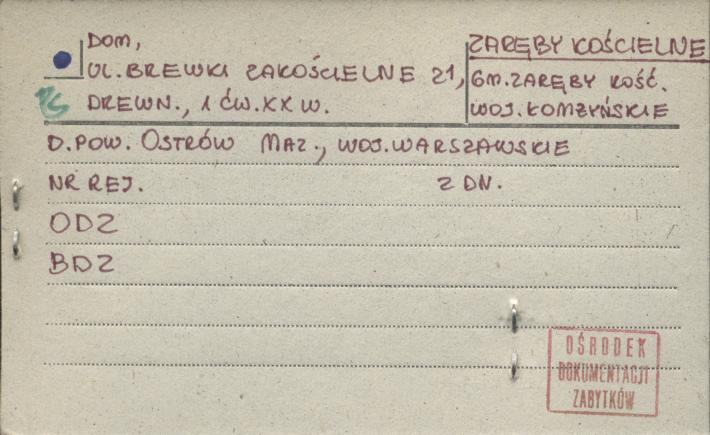 DOM,
UL. BREWKI ZAKOŚCIELNE 21,
DREWN., 1 ĆW. XX W.
ZARĘBY KOŚCIELNE
GM. ZARĘBY KOŚĆ.
WOJ. ŁOMŻYŃSKIE
D. POW. OSTRÓW MAZ., WOJ. WARSZAWSKIE
NR REJ. Z DN.
ODZ
BDZ
OŚRODEK
DOKUMENTACJI
ZABYTKÓW